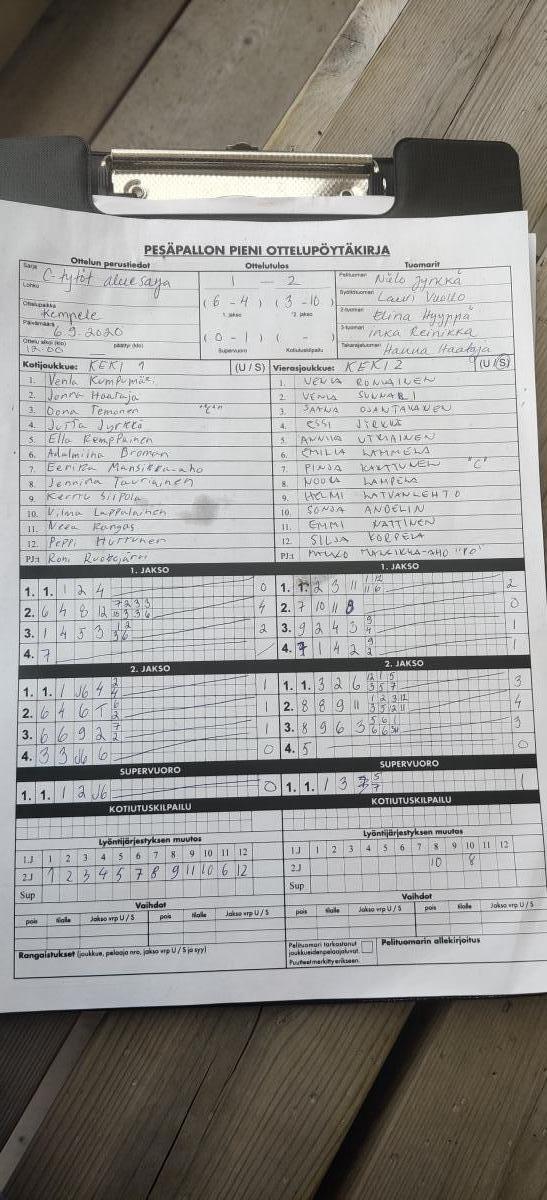 PESÄPALLON PIENI OTTELUPÖYTÄKIRJA
Ottelun perustiedot Ottelutulos Tuomarit
Sarja C-tytöt aluesarja 1 — 2 Pelituomari Niilo Jyrkkä
Lohko Syöttötuomari Lauri Vuolto
Ottelupaikka Kempele ( 6 - 4 ) ( 3 - 10 ) 2-tuomari Elina Hyyppä
1. jakso 2. jakso
Päivämäärä 6.9.2020 ( 0 - 1 ) ( - ) 3-tuomari Inka Reinikka
Ottelu alkoi (klo) 12.00 päättyi (klo) Supervuoro Kotiutuskilpailu Takarajatuomari Hanna Haataja
Kotijoukkue: KEKI 1 (U / S) Vierasjoukkue: KEKI 2 (U / S)
1. Venla Kumpumäki 1. VENLA RONKAINEN
2. Jonna Haataja 2. VENLA SUNNARI
3. Oona Temonen "C" 3. SAANA OJANTAKANEN
4. Jutta Jyrkkä 4. ESSI JIRKKÄ
5. Ella Kemppainen 5. ANNIKA UTRIAINEN
6. Adalmiina Broman 6. EMILIA LAMMELA
7. Eerika Mansikka-aho 7. PINJA KARTTUNEN "C"
8. Jennina Tauriainen 8. NOORA LAMPELA
9. Kerttu Siipola 9. HELMI LATVANLEHTO
10. Vilma Lappalainen 10. SONJA ANDELIN
11. Neea Kangas 11. EMMI NATTINEN
12. Peppi Huttunen 12. SILJA KORPELA
PJ:t Roni Ruokojärvi PJ:t MARKO MANSIKKA-AHO "PO"
1. JAKSO 1. JAKSO
1. 1. 1 2 4 0 1. 1. 2 3 11 2
2. 6 4 8 12 4 2. 7 10 11 8 0
3. 1 4 5 3 2 3. 9 2 4 3 1
4. 7 4. 7 1 4 2 1
2. JAKSO 2. JAKSO
1. 1. 1 J6 4 1 1. 1. 3 2 6 3
2. 6 4 6 T 1 2. 8 8 9 11 4
3. 6 6 9 2 1 3. 8 9 6 3 3
4. 3 3 J6 6 0 4. 5 0
SUPERVUORO SUPERVUORO
1. 1. 1 2 J6 0 1. 1. 1 3 1
KOTIUTUSKILPAILU KOTIUTUSKILPAILU
Lyöntijärjestyksen muutos Lyöntijärjestyksen muutos
1.J 1 2 3 4 5 6 7 8 9 10 11 12 1.J 1 2 3 4 5 6 7 8 9 10 11 12
2.J 1 2 3 4 5 7 8 9 11 10 6 12 2.J 10 8
Sup Sup
Vaihdot Vaihdot
pois tilalle Jakso vrp U / S pois tilalle Jakso vrp U / S pois tilalle Jakso vrp U / S pois tilalle Jakso vrp U / S
Rangaistukset (joukkue, pelaaja nro, jakso vrp U / S ja syy) Pelituomari tarkastanut joukkueiden pelaajaluvat. Puutteet merkitty erikseen. Pelituomarin allekirjoitus